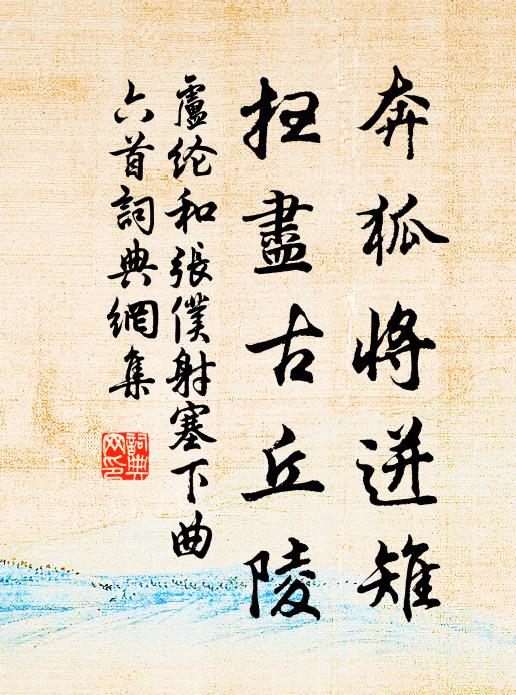 奔狐將迸雉
扫盡古丘陵
盧纶和張僕射塞下曲
六首詞典網集
詞典
网印